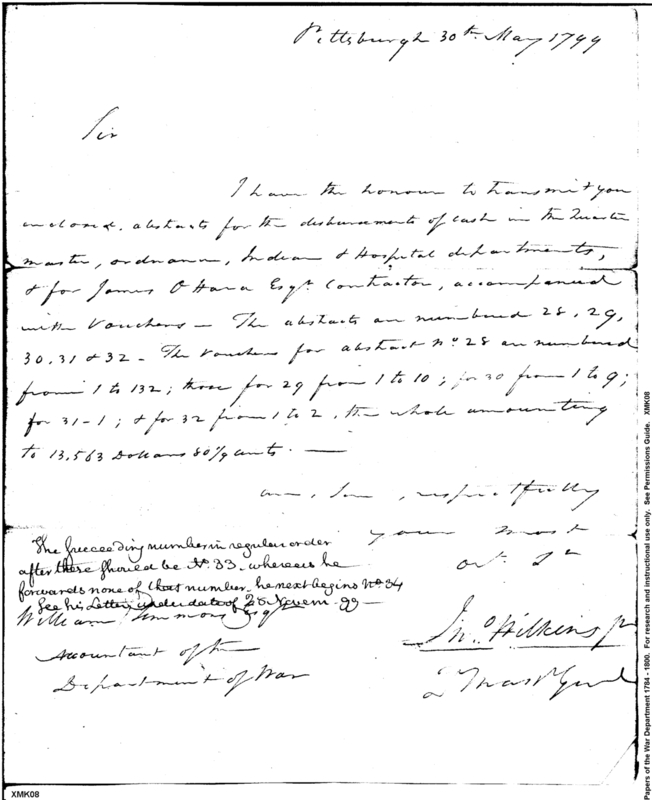 Pittsburgh 30th May 1799
Sir
I have the honour to transmit you
enclosed, abstracts for the disbursements of cash in the Quarter
master, ordnance, Indian & Hospital departments,
& for James O Hara Esqr. Contractor, accompanied
with Vouchers — The abstracts are numbered 28, 29,
30, 31 & 32 - The Vouchers for abstract No. 28 are numbered
from 1 to 132; those for 29 from 1 to 10; for 30 from 1 to 9;
for 31 - 1; & for 32 from 1 to 2, the whole amounting
to 13,563 Dollars 80 cents. —
am, Sir, respectfully
your most
obt. St
The succeeding number in regular order
after these should be No. 33. whereas he
forwards none of that number. he next begins No 34
See his Letter, under date of 28 Novem. 99 —
William Simmons Esqr
Accountant of the
Department of War
Jno. Wilkins Jr
Qr Mastr Genl
XMK08
Papers of the War Department 1784 - 1800. For research and instructional use only. See Permissions Guide. XMK08